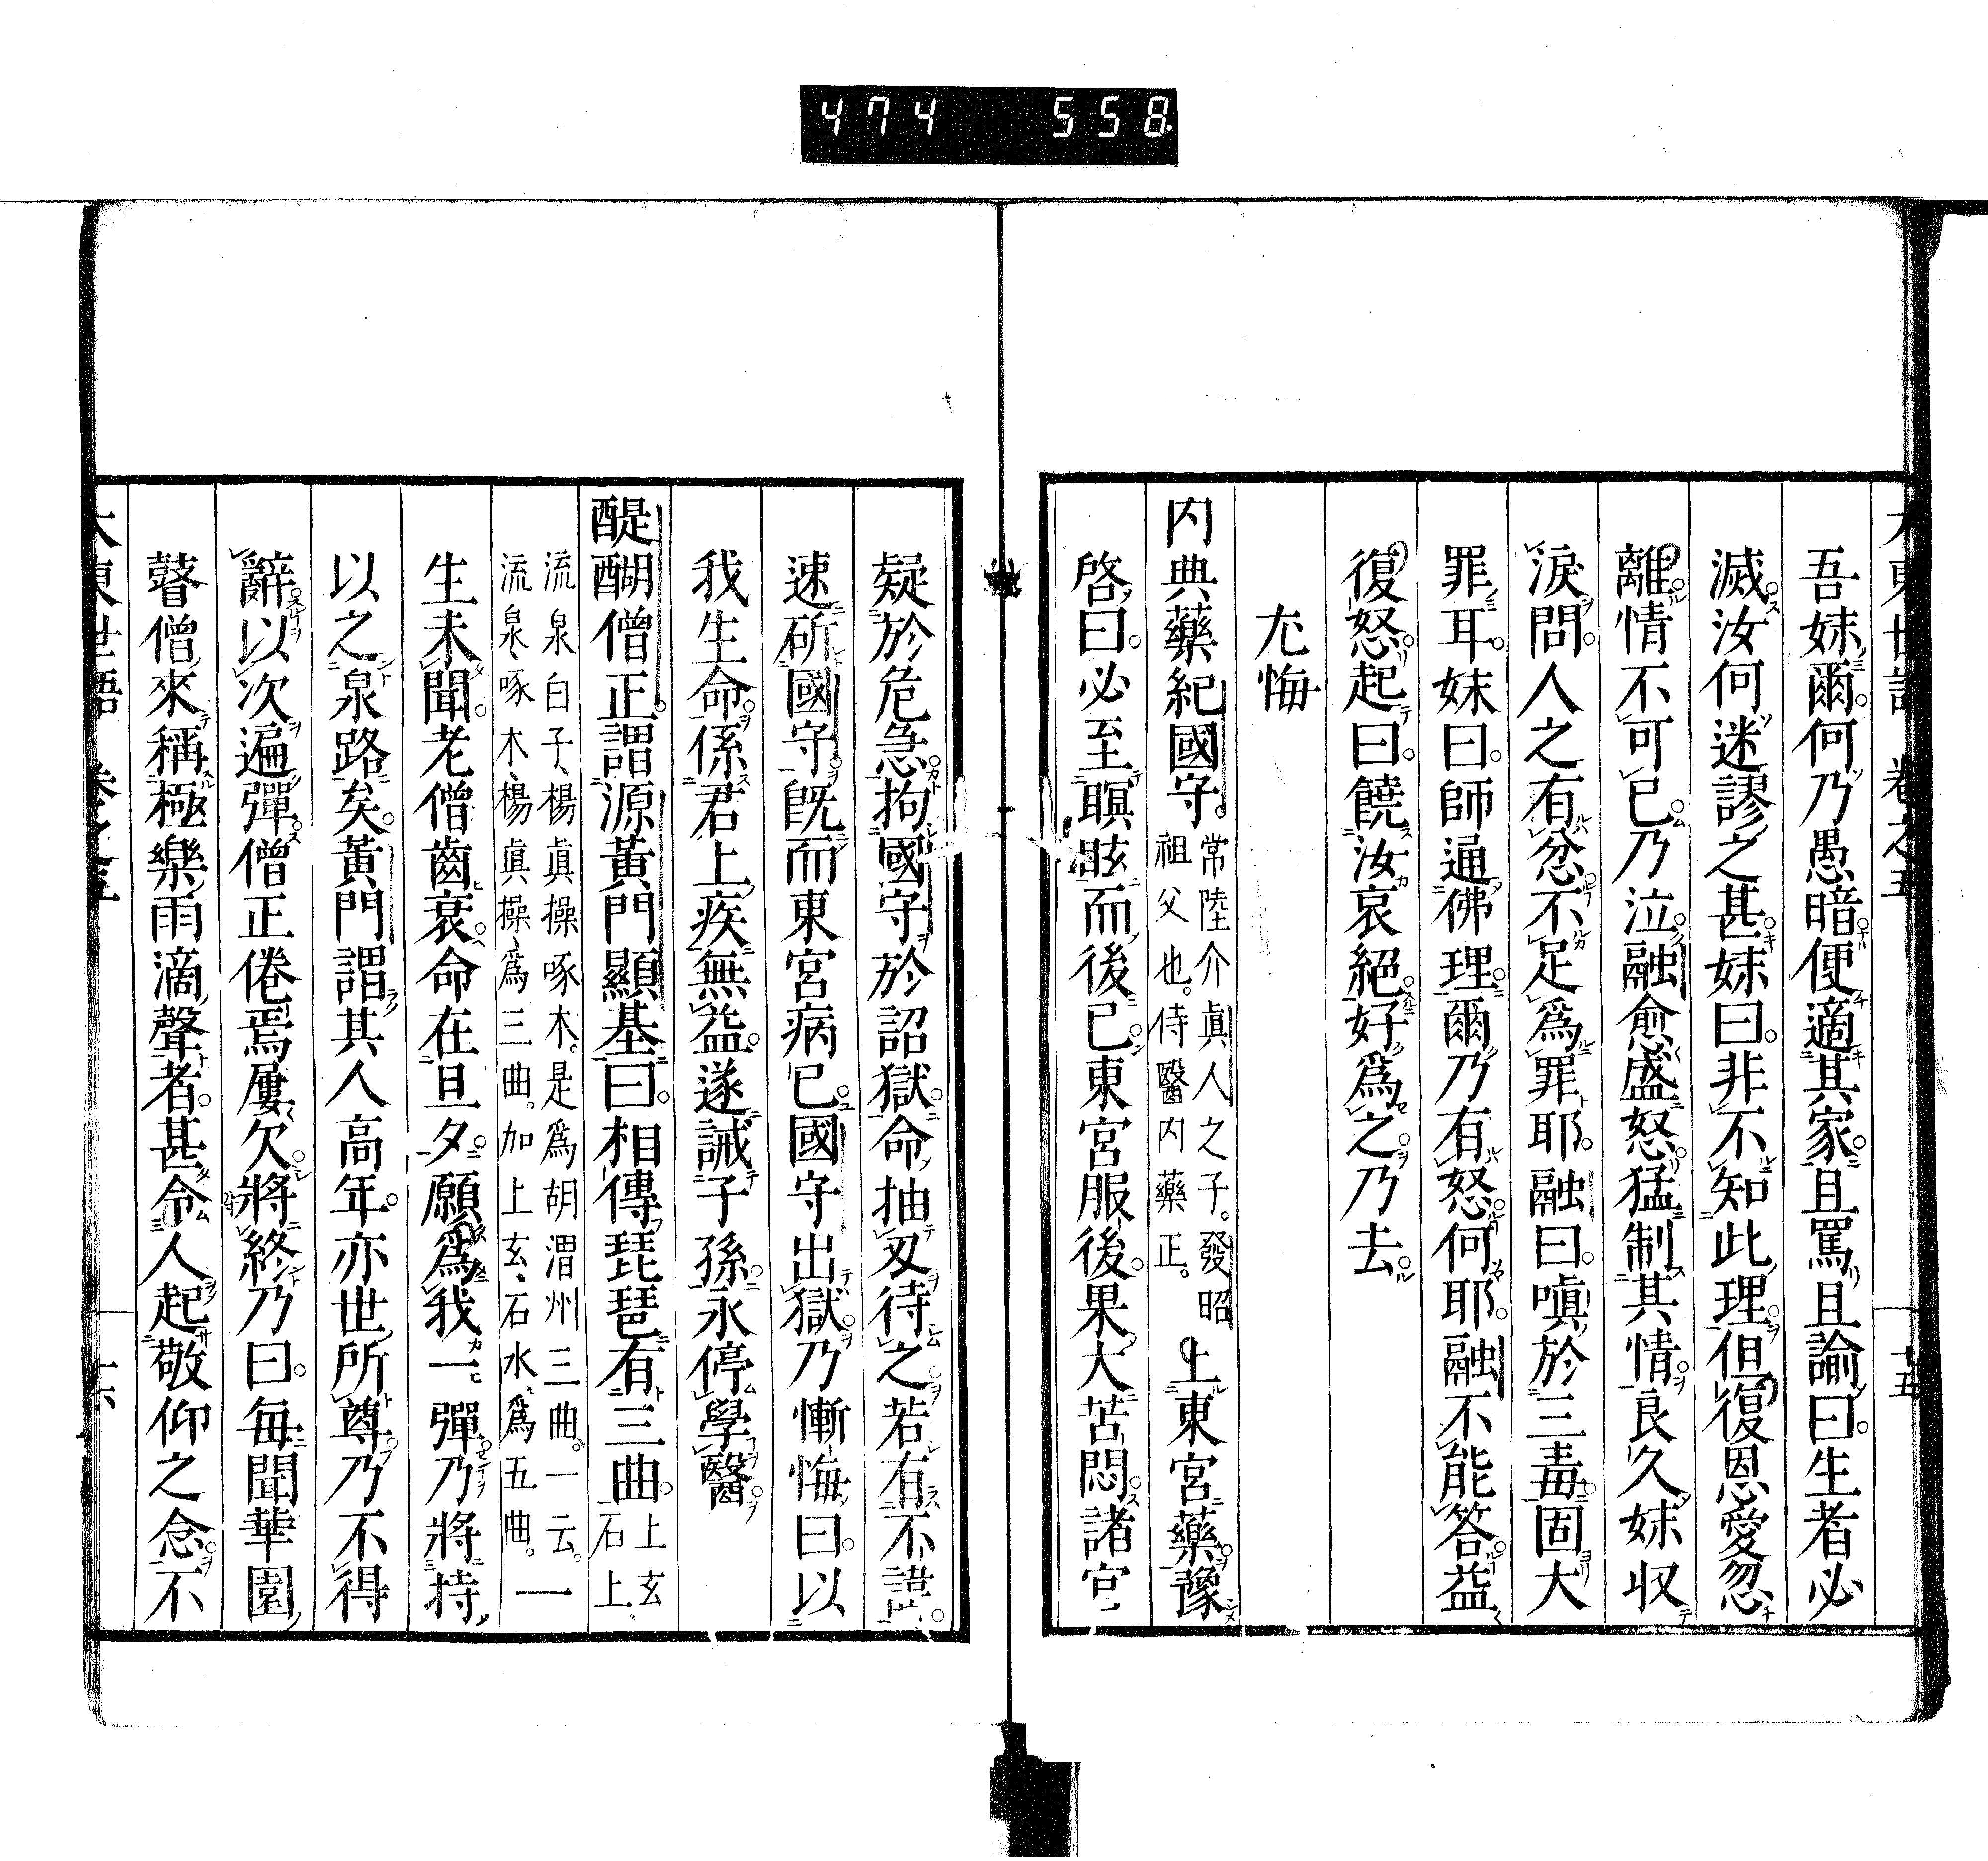 474 558
大東世語 卷之五 十五
吾妹爾何乃愚暗便適其家且罵且諭曰生者必
滅汝何迷謬之甚妹曰非不知此理但復恩愛忽
離情不可已乃泣融愈盛怒猛制其情良久妹収
淚問人之有忿不足爲罪耶融曰嗔於三毒固大
罪耳妹曰師通佛理爾乃有怒何耶融不能答益
復怒起曰饒汝哀絕好爲之乃去
尤悔
内典藥紀國守常陸介眞人之子發昭祖父也侍醫内藥正上東宮藥豫
啓曰必至瞑眩而後已東宮服後果大苦悶諸官
疑於危急拘國守於詔獄命抽刄待之若有不諱
速斫國守既而東宮病已國守出獄乃慚悔曰以
我生命係君上疾無益遂誡子孫永停學醫
醍醐僧正謂源黃門顯基曰相傳琵琶有三曲上玄石上
流泉白子楊眞操啄木是爲胡渭州三曲一云流泉啄木楊眞操爲三曲加上玄石水爲五曲一
生未聞老僧齒衰命在旦夕願爲我一彈乃將持
以之泉路矣黃門謂其人高年亦世所尊乃不得
辭以次遍彈僧正倦焉屢欠將終乃曰每聞華園
瞽僧來稱極樂雨滴聲者甚令人起敬仰之念不
大東世語 卷之五 十六